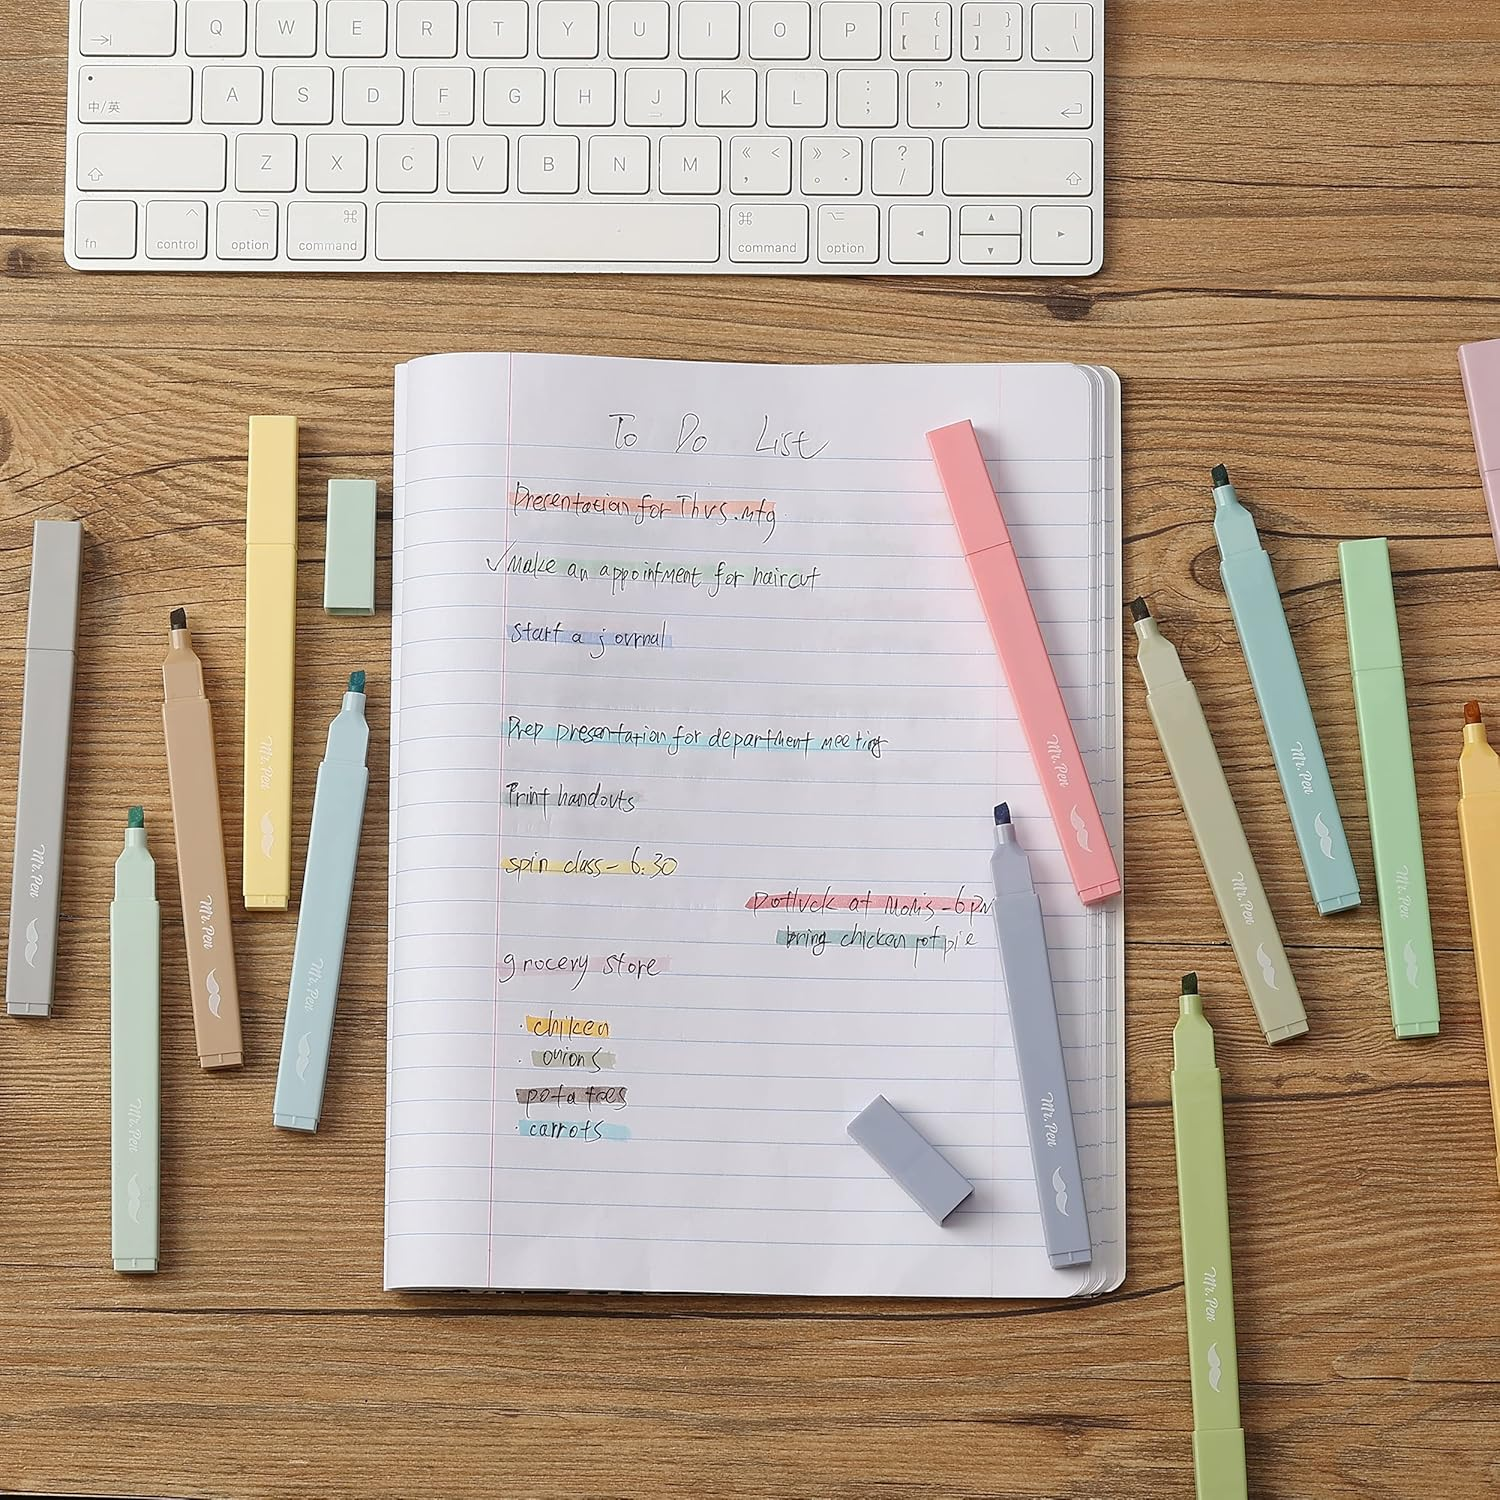 Q W E R T Y U I O P 「 { 【 [ 」 } 】 ] | 、 \
中/英 A S D F G H J K L : ; " '
Z X C V B N M 《 < , 》 > 。 . ? /
fn control option command command option
To Do List
Presentation for Thurs. mtg
✓ Make an appointment for haircut
start a journal
Prep presentation for department meeting
Print handouts
spin class - 6:30
Potluck at Mom's - 6pm
bring chicken pot pie
grocery store
· chiken
· onions
· potatoes
· carrots
Mr. Pen
Mr. Pen
Mr. Pen
Mr. Pen
Mr. Pen
Mr. Pen
Mr. Pen
Mr. Pen
Mr. Pen
Mr. Pen
Mr. Pen